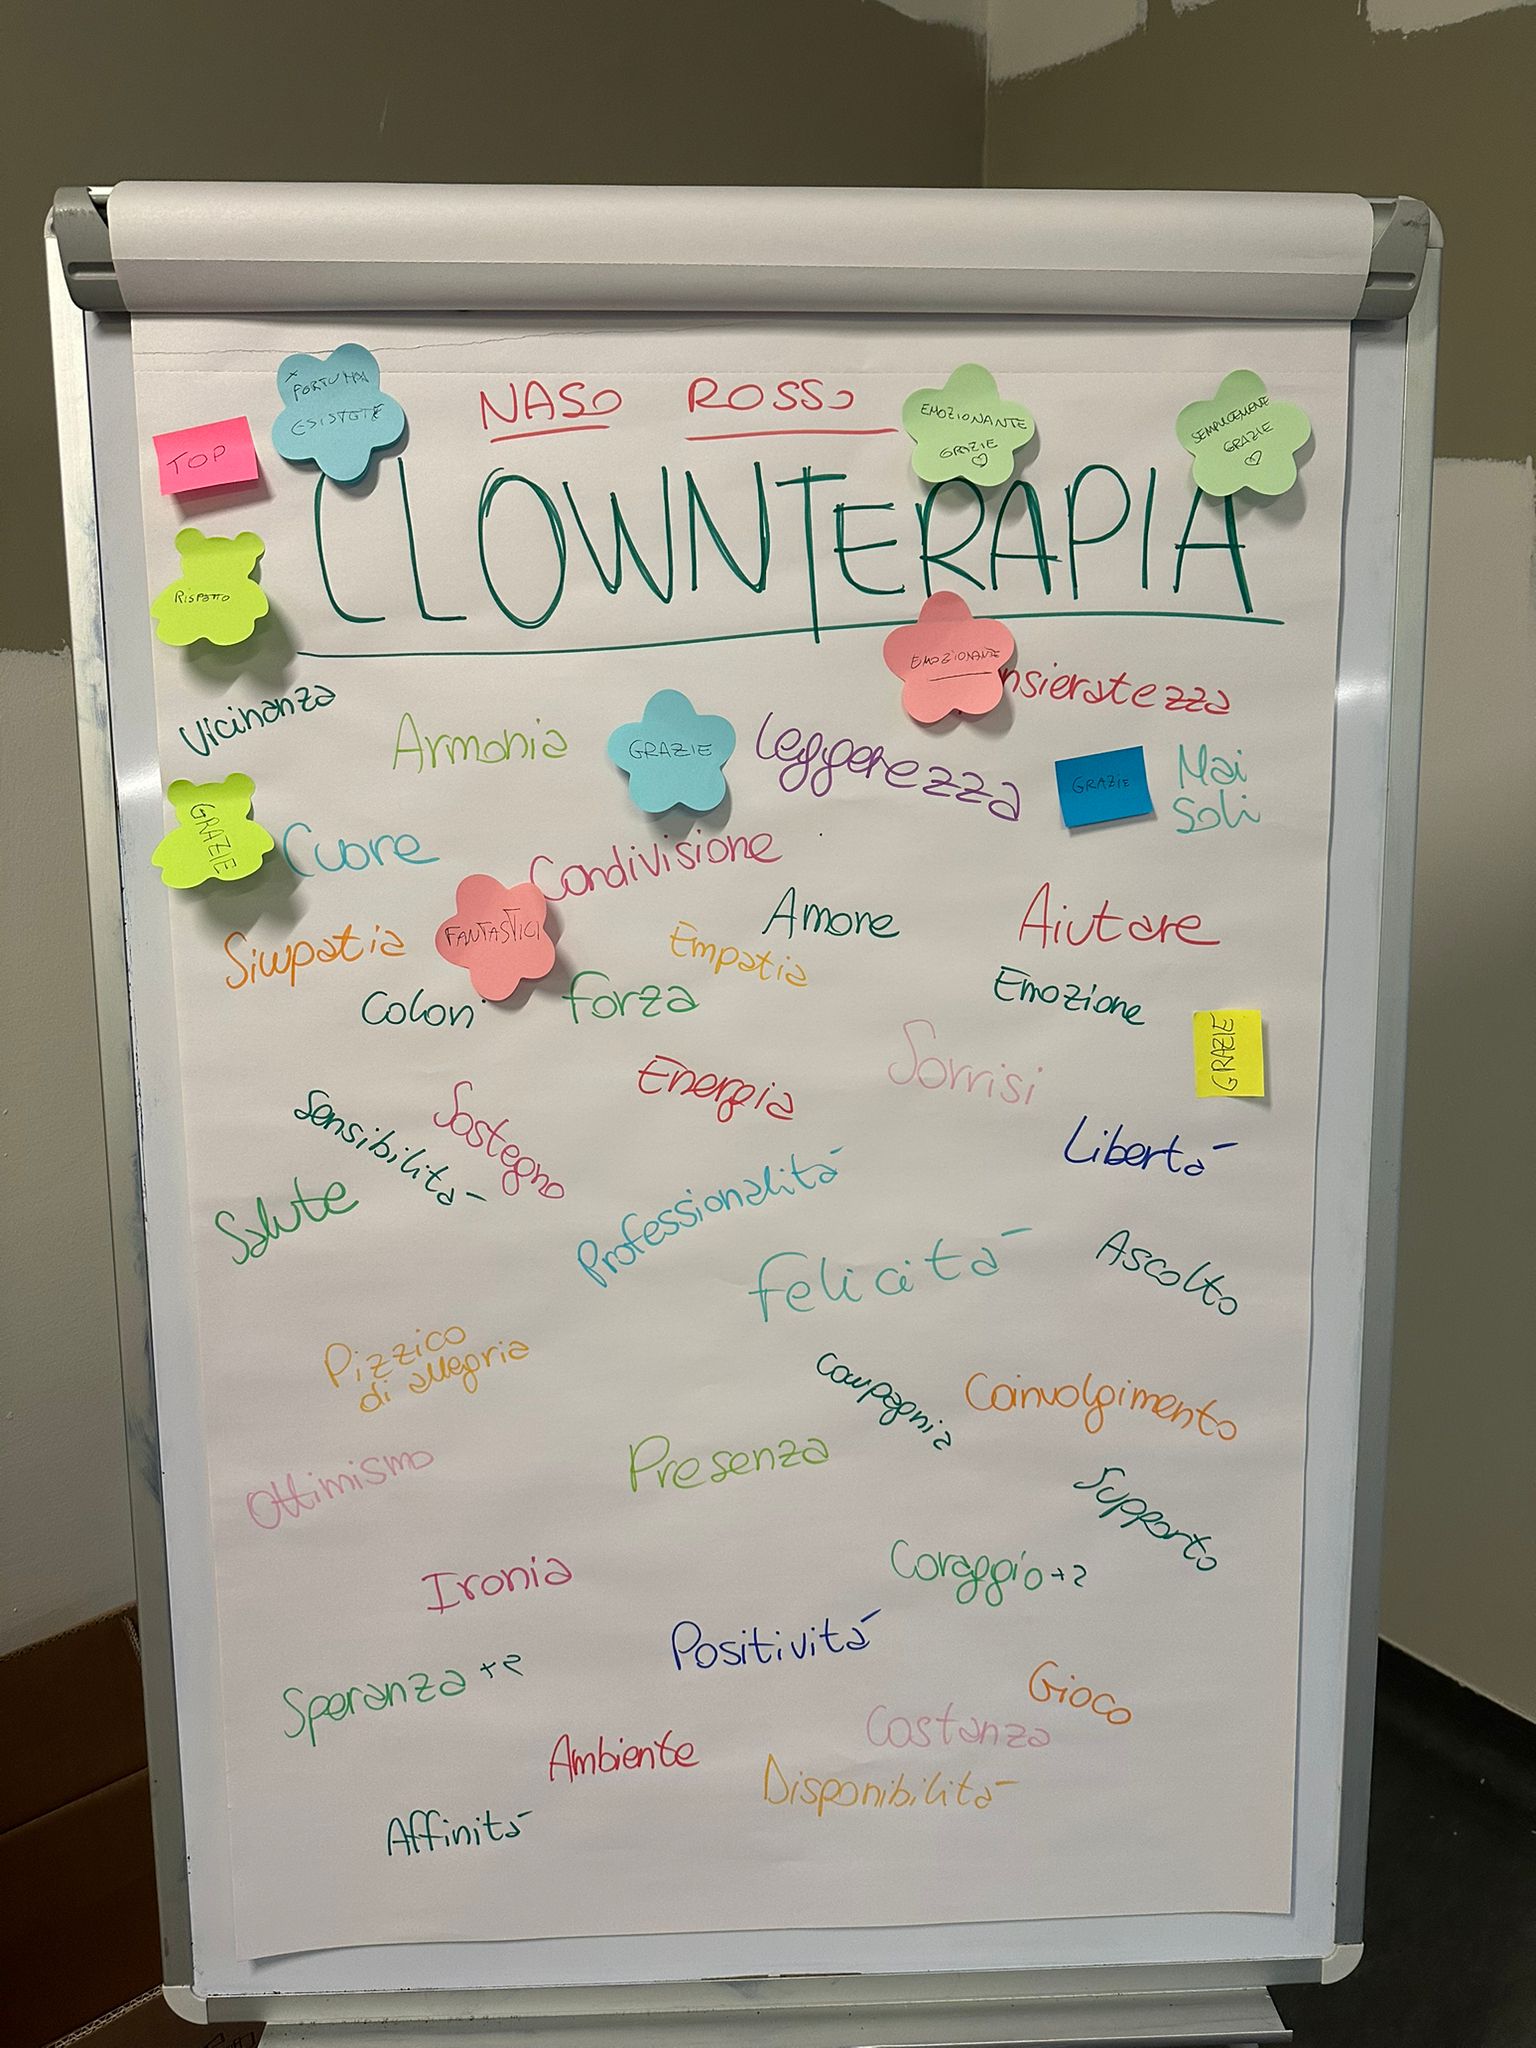 X FORTUNA
ESISTETE
NASO ROSSO
EMOZIONANTE
GRAZIE
SEMPLICEMENTE
GRAZIE
TOP
CLOWNTERAPIA
RISPETTO
EMOZIONANTE
nsieratezza
Vicinanza
Armonia
GRAZIE
Leggerezza
GRAZIE
Mai
Soli
GRAZIE
Cuore
Condivisione
Simpatia
FANTASTICI
Empatia
Amore
Aiutare
Colori
Forza
Emozione
GRAZIE
Energia
Sorrisi
Sensibilitá
Sostegno
Libertá
Salute
Professionalitá
Felicitá
Ascolto
Pizzico
di allegria
Compagnia
Coinvolgimento
Ottimismo
Presenza
Supporto
Ironia
Coraggio +2
Positivitá
Speranza +2
Gioco
Costanza
Ambiente
Disponibilitá
Affinitá